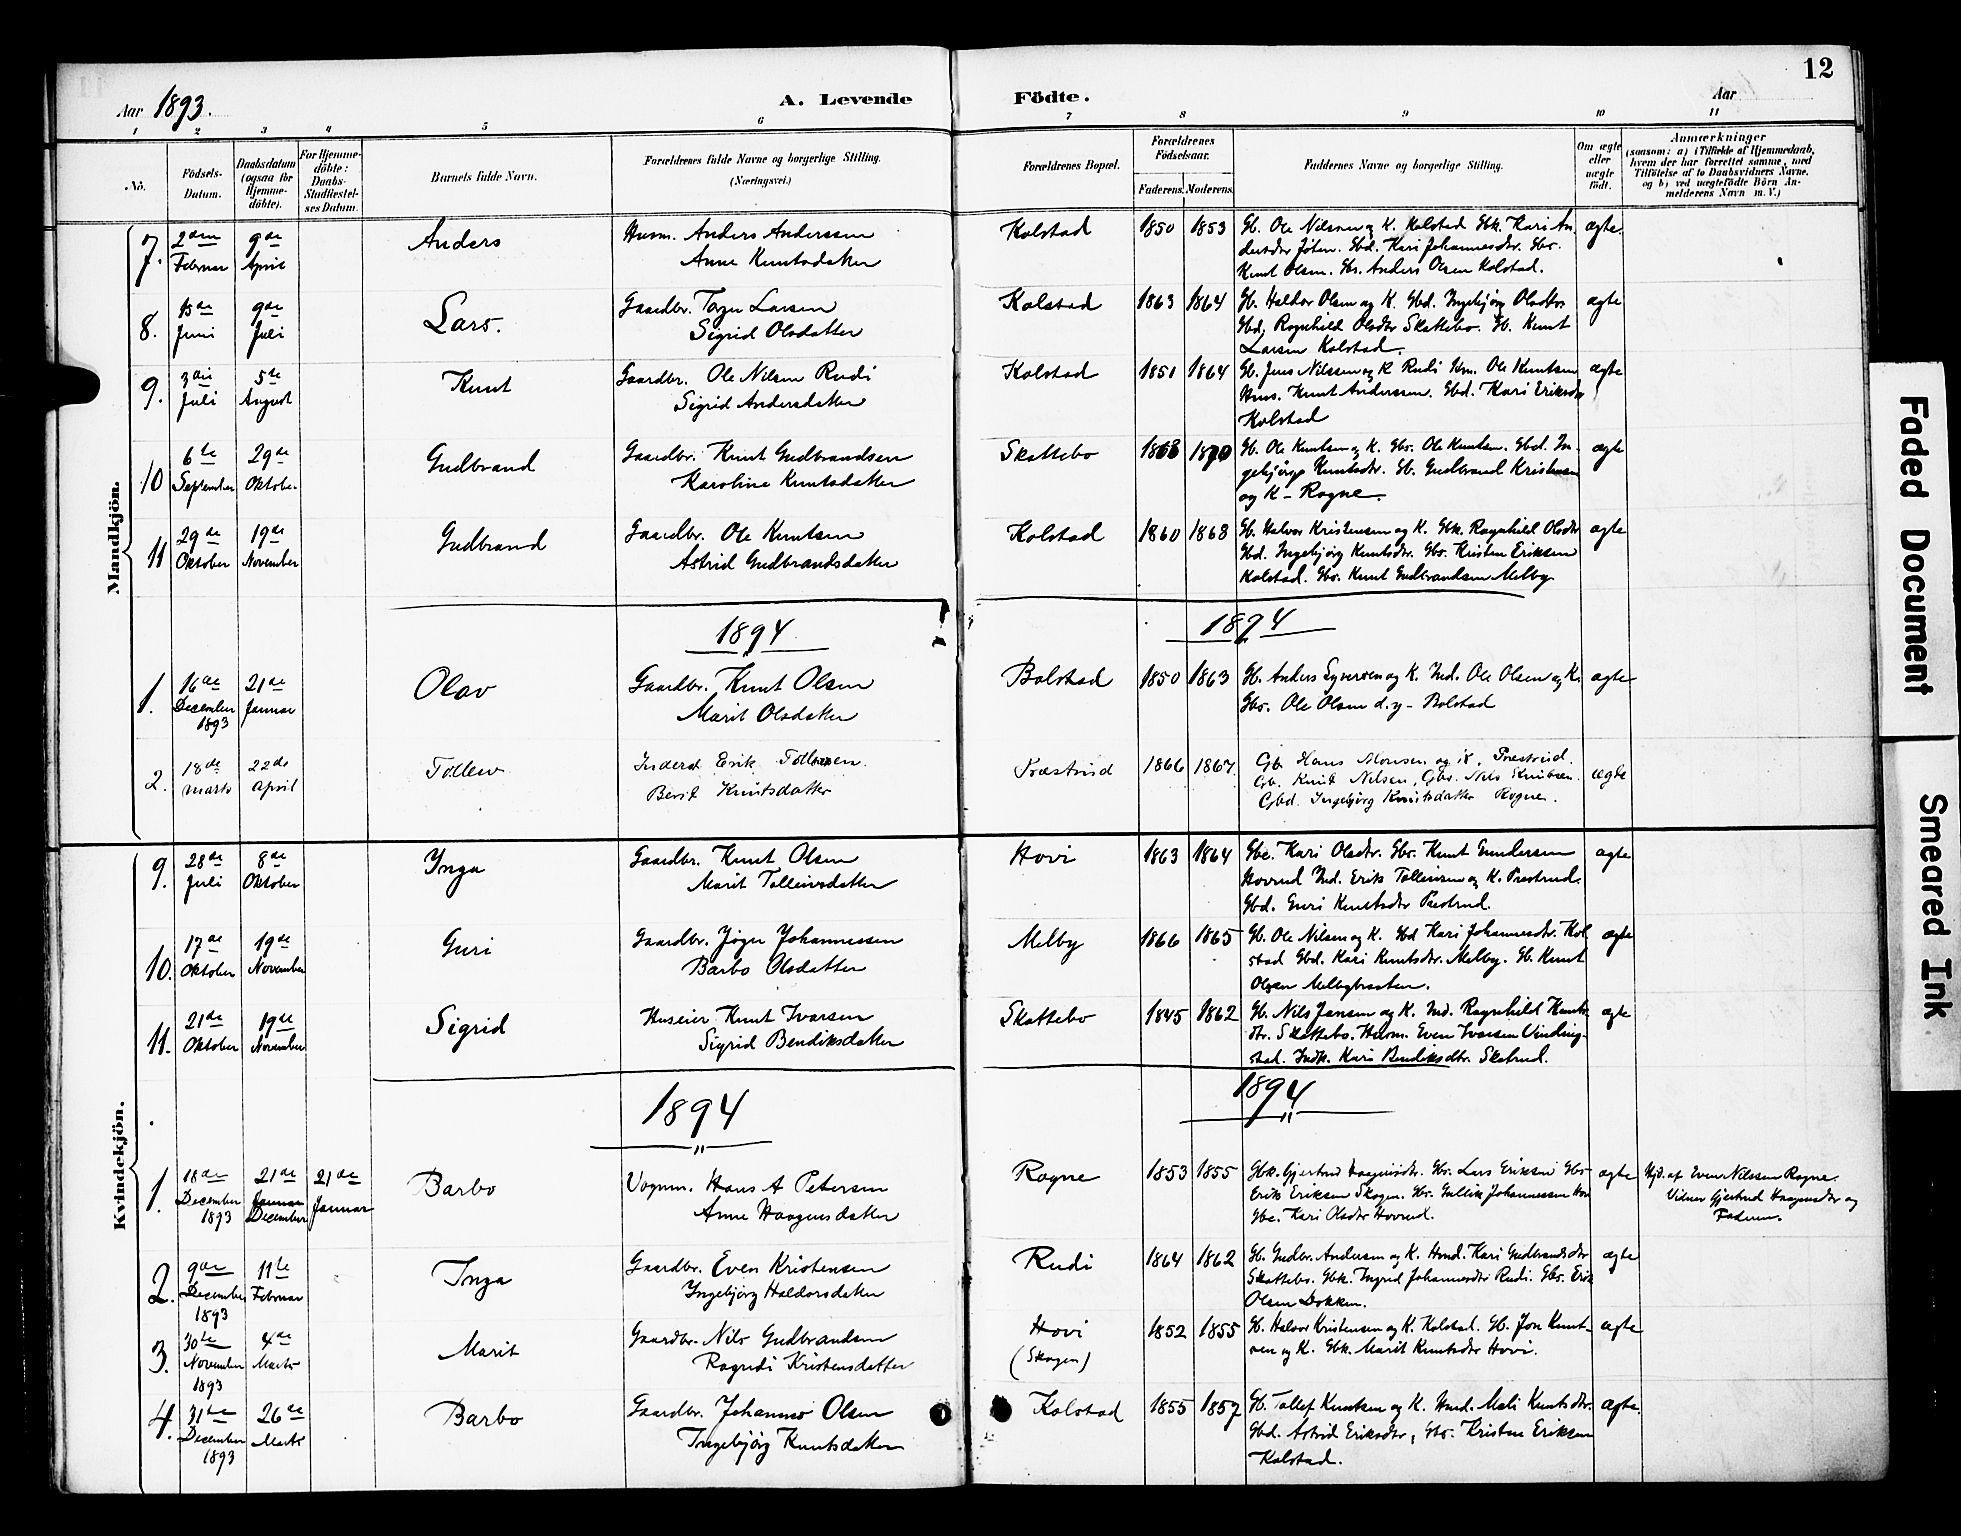 12
Aar 1893.
A. Levende Födte.
Aar
1 2 3 4 5 6 7 8 9 10 11
No.
Födsels-
Datum.
Daabsdatum
(ogsaa for
Hjemme-
döbte).
For Hjemme-
döbte:
Daabs-
Stadfæstel-
ses Datum.
Barnets fulde Navn.
Forældrenes fulde Navne og borgerlige Stilling.
(Næringsvei.)
Forældrenes Bopæl.
Forældrenes
Födselsaar.
Faderens. Moderens.
Faddernes Navne og borgerlige Stilling.
Om ægte
eller
uægte
født.
Anmærkninger
(saasom: a) i Tilfælde af Hjemmedaab,
hvem der har forrettet samme, med
Tilföielse af to Daabsvidners Navne,
og b) ved uægtefödte Börn An-
melderens Navn m. V.)
Mandkjön.
7. 2den Februar 9de April Anders Husm. Anders Anderssen
Anne Knutsdatter
Kolstad 1850 1853 Gb. Ole Nilsen og K. Kolstad Gbk. Kari An-
dersdtr Joten. Gbd. Kari Johannesdtr. Gbs.
Knut Olsen. Gbs. Anders Olsen Kolstad.
ægte.
8. Juni 9de Juli Lars. Gaardbr. Torger Larsen
Sigrid Olsdatter
Kolstad 1863 1864 Gb. Haldor Olsen og K. Gbd. Ingebjörg Olsdtr.
Gbd. Ragnhild Olsdtr Skattebo. Gb. Knut
Larsen Kolstad.
ægte
9. 3die Juli 5te August Knut Gaardbr. Ole Nilsen Rudi
Sigrid Andersdatter
Kolstad 1851 1864 Gb. Jens Nilssen og K Rudi Ole Knutsen
Knut Anderssen. Gbd. Kari Eriksdtr
Kolstad
ægte
10 6te September 29de Oktober Gudbrand Gaardbr. Knut Gudbrandsen
Karoline Knutsdatter
Skattebo 1868 1870 Gb. Ole Knutsen og K. Gbs. Ole Knutsen. Gbd. In-
gebjörg Knutsdtr. Gb. Gudbrand Kristensen
og K - Rogne.
ægte
11 29de Oktober 19de November Gudbrand Gaardbr. Ole Knutsen
Astrid Gudbrandsdatter
Kolstad 1860 1868 Gb. Halvor Kristensen og K. Gbk. Ragnhild Olsdtr
Gbd. Ingebjörg Knutsdtr. Gbs. Kristen Eriksen
Kolstad. Gbs. Knut Gudbrandsen Melby.
ægte
1894 1894
1. 16de December 1893 21de Januar Olav Gaardbr. Knut Olsen
Marit Olsdatter
Bolstad 1850 1863 Gb. Anders Syversen og K. Ind. Ole Olsen og K.
Gbs. Ole Olsen d.y - Bolstad
ægte
2. 18de marts 22de April Tollew Inderst Erik Tollewsen
Berit Knutsdatter
Præstrud 1866 1867. Gb. Hans Monsen og K, Præstrud.
Gb. Knut Nilsen, Gbs. Nils Knutsen.
Gbd. Ingebjörg Knutsdatter Rogne.
ægte
Kvindekjön.
9. 28de Juli 8de Oktober Inga Gaardbr. Knut Olsen
Marit Tolleivsdatter
Hovi 1863 1864 Gbe. Kari Olsdtr. Gbs. Knut Gundersen
Hovrud Ind. Erik Tollewsen og K. Prestrud.
Gbd. Guri Knutsdtr Prestrud.
ægte
10. 17de Oktober 19de November Guri Gaardbr. Jöger Johannessen
Barbo Olsdatter
Melby 1866 1865 Gb. Ole Nilsen og K. Gbd Kari Johannesdtr. Kol-
stad Gbd. Kari Knutsdtr. Melby. Gb. Knut
Olsen Melbybraaten.
ægte
11. 21de Oktober 19de November Sigrid Huseier Knut Ivarsen
Sigrid Bendiksdatter
Skattebo 1845 1862 Gb. Nils Jansen og K. Ind. Ragnhild Knuts-
dtr. Skattebo. Husm. Even Iversen Vinding-
stad. Indk. Kari Bendiksdtr. Skatrud.
ægte
1894 1894
1. 18de December 1893 21de Januar December 21de Januar Barbo Vognm. Hans A Petersen
Anne Haagensdatter
Rogne 1853 1855 Gbk. Gjertrud Haagensdtr. Gb. Lars Eriksen Gbs-
Erik Eriksen Skogen. Gbs. Gullik Johannessen Hovi
Gbe. Kari Olsdtr Hovrud.
ægte
Hjd. af Even Nilssen Rogne.
Vidner Gjertrud Haagensdtr og
Faderen.
2. 9de December 1893 11te Februar Inga Gaardbr. Even Kristensen
Ingebjörg Haldorsdatter
Rudi 1864 1862 Gb. Gudbr. Andersen og K. Hmd. Kari Gudbrandsdtr
Skattebo. Gbk. Ingrid Johannesdtr Rudi. Gbs. Erik
Olsen Dokken.
ægte
3. 30te November 1893 4de Marts Marit Gaardbr. Nils Gudbrandsen
Ragndi Kristensdatter
Hovi
(Skogen)
1852 1855 Gb. Halvor Kristensen og K. Kolstad. Gb. Jon Knut-
sen og K. Gbk. Marit Knutsdtr Hovi.
ægte
4. 31te December 1893 26de Marts Barbo Gaardbr. Johannes Olsen
Ingebjörg Knutsdatter
Kolstad 1855 1857 Gb. Tollef Knutsen og K. Hmd. Mali Knutsdtr.
Gbd. Astrid Eriksdtr, Gbs. Kristen Eriksen
Kolstad.
ægte.
Faded Document
Smeared Ink